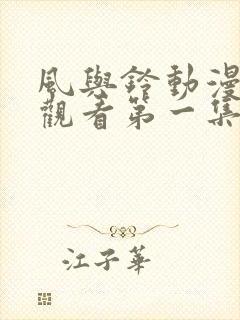 風與鈴動漫
觀看第一集
江子華